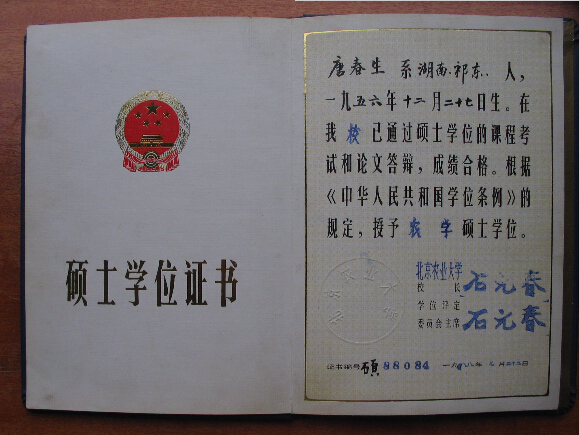 硕士学位证书
唐春生 系湖南·祁东·· 人，
一九五六年十二月二十七日生。在
我 校 已通过硕士学位的课程考
试和论文答辩，成绩合格。根据
《中华人民共和国学位条例》的
规定，授予 农学 硕士学位。
北京农业大学
校长 石元春
学位评定
委员会主席 石元春
证书编号 硕 88084 一九八八年